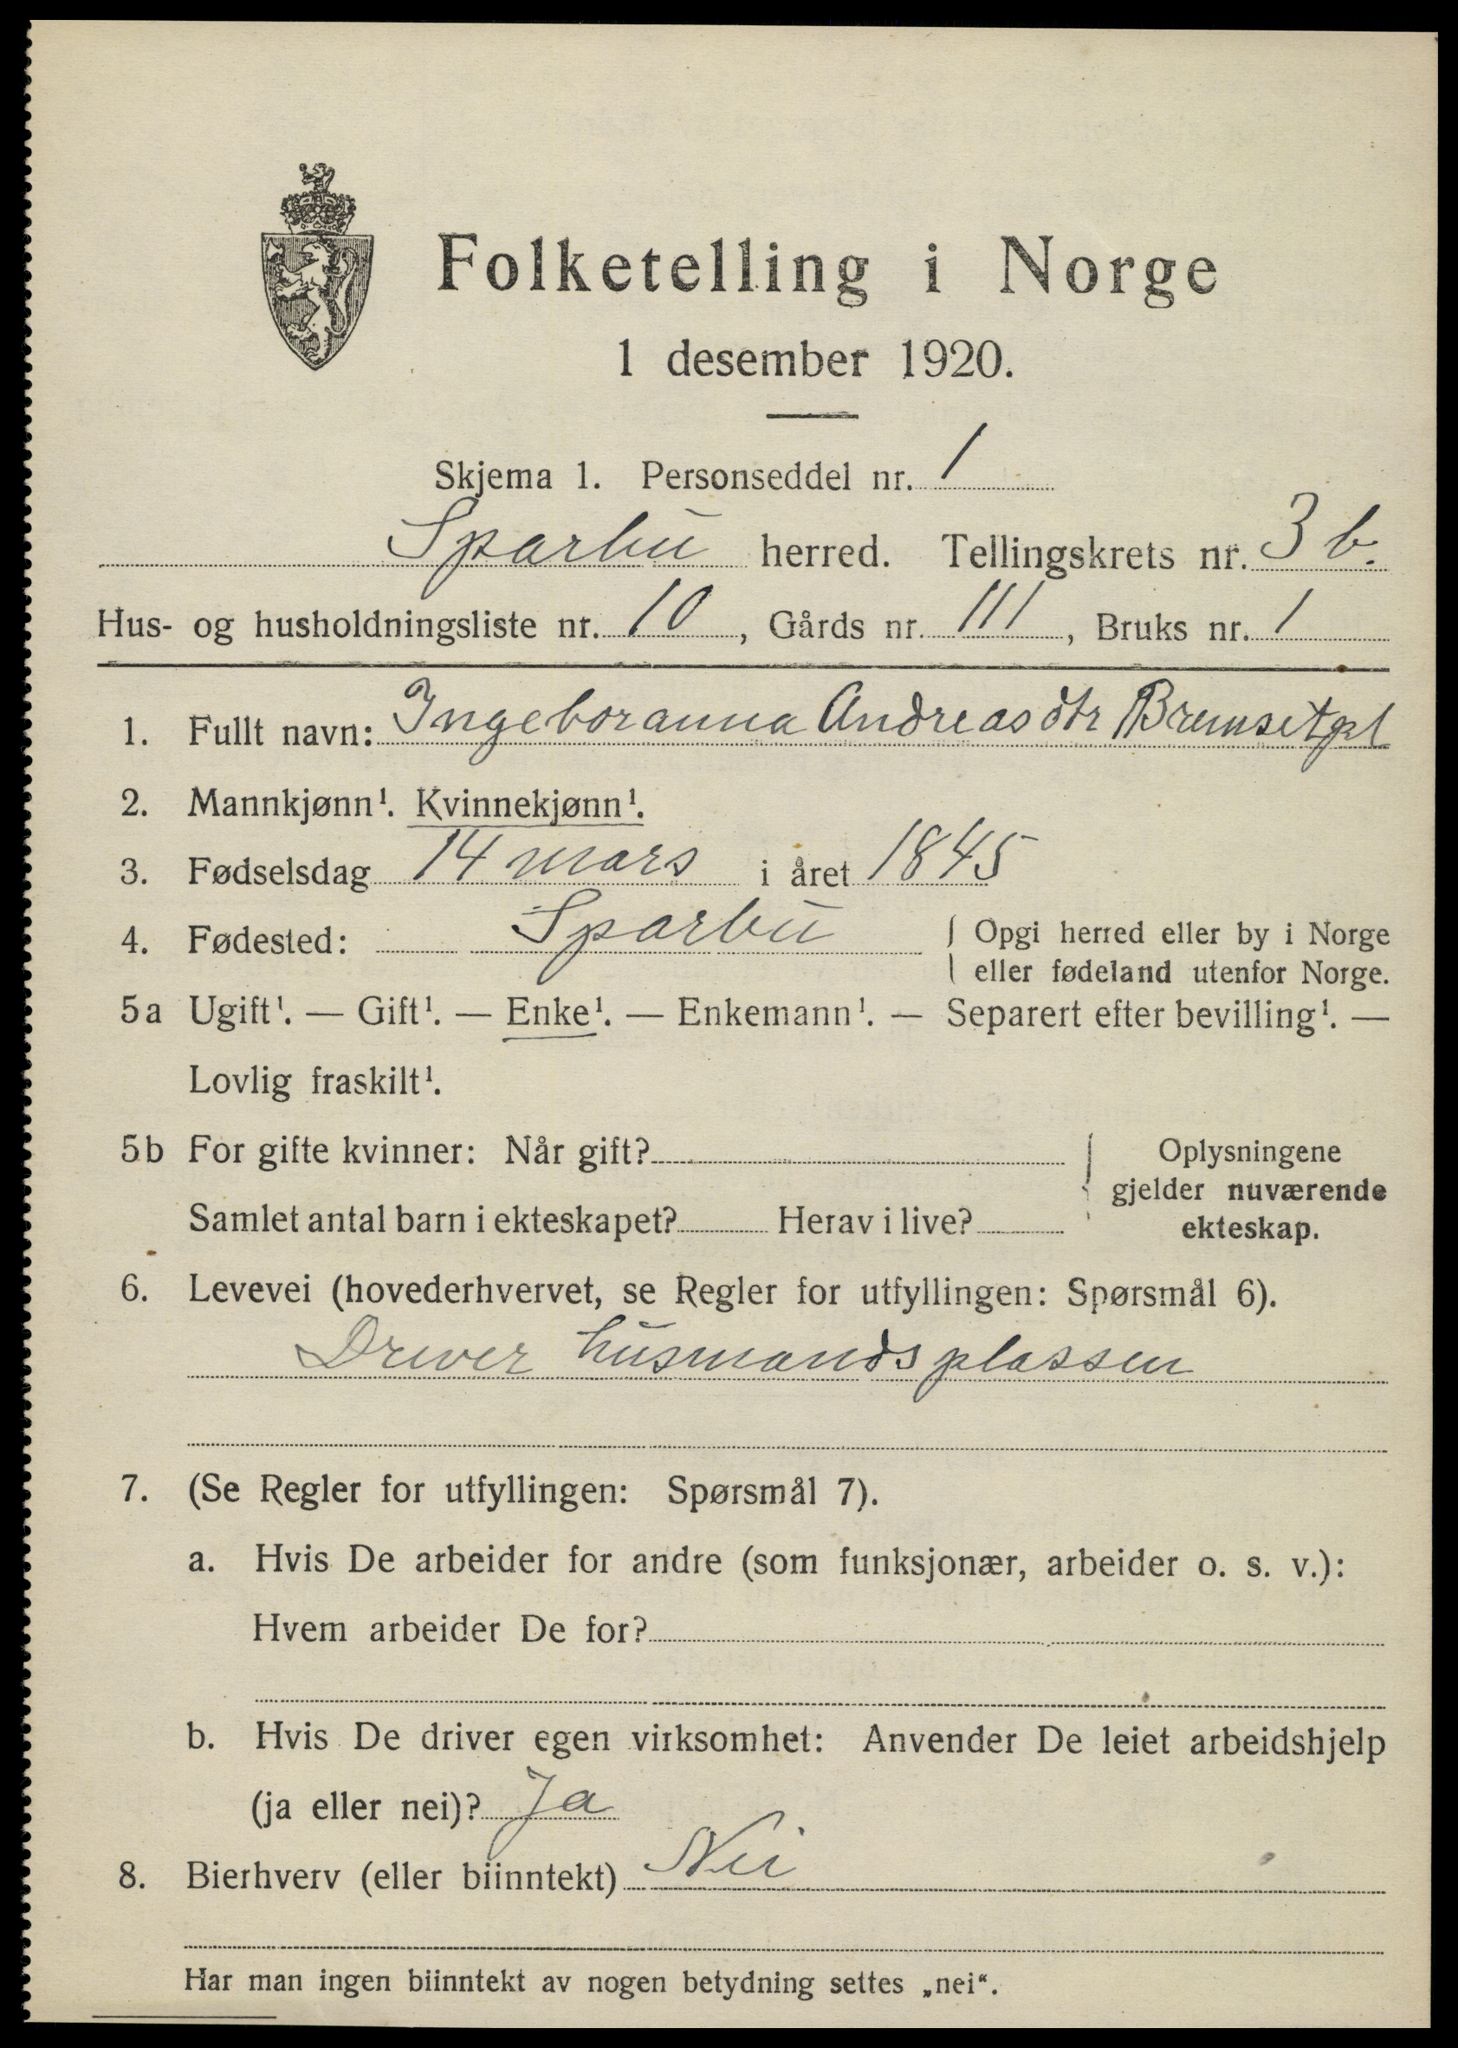 Folketelling i Norge
1 desember 1920.
Skjema 1. Personseddel nr. 1
Sparbu herred. Tellingskrets nr. 3 b.
Hus- og husholdningsliste nr. 10, Gårds nr. 111, Bruks nr. 1
1. Fullt navn: Ingeboranna Andreasdtr Bremsetpl
2. Mannkjønn¹. Kvinnekjønn¹.
3. Fødselsdag 14 mars i året 1845
4. Fødested: Sparbu { Opgi herred eller by i Norge
eller fødeland utenfor Norge.
5a Ugift¹. — Gift¹. — Enke¹. — Enkemann¹. — Separert efter bevilling¹. —
Lovlig fraskilt¹.
5b For gifte kvinner: Når gift? { Oplysningene
gjelder nuværende
Samlet antal barn i ekteskapet? Herav i live? ekteskap.
6. Levevei (hovederhvervet, se Regler for utfyllingen: Spørsmål 6).
Driver husmandsplassen
7. (Se Regler for utfyllingen: Spørsmål 7).
a. Hvis De arbeider for andre (som funksjonær, arbeider o. s. v.):
Hvem arbeider De for?
b. Hvis De driver egen virksomhet: Anvender De leiet arbeidshjelp
(ja eller nei)? Ja
8. Bierhverv (eller biinntekt) Nei
Har man ingen biinntekt av nogen betydning settes „nei“.